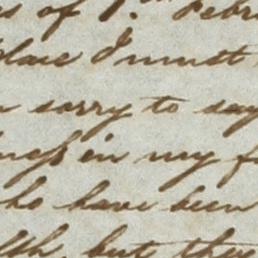 s of 1st Febr
place I must
sorry to say
ness in my f
ho have been
lth, but they